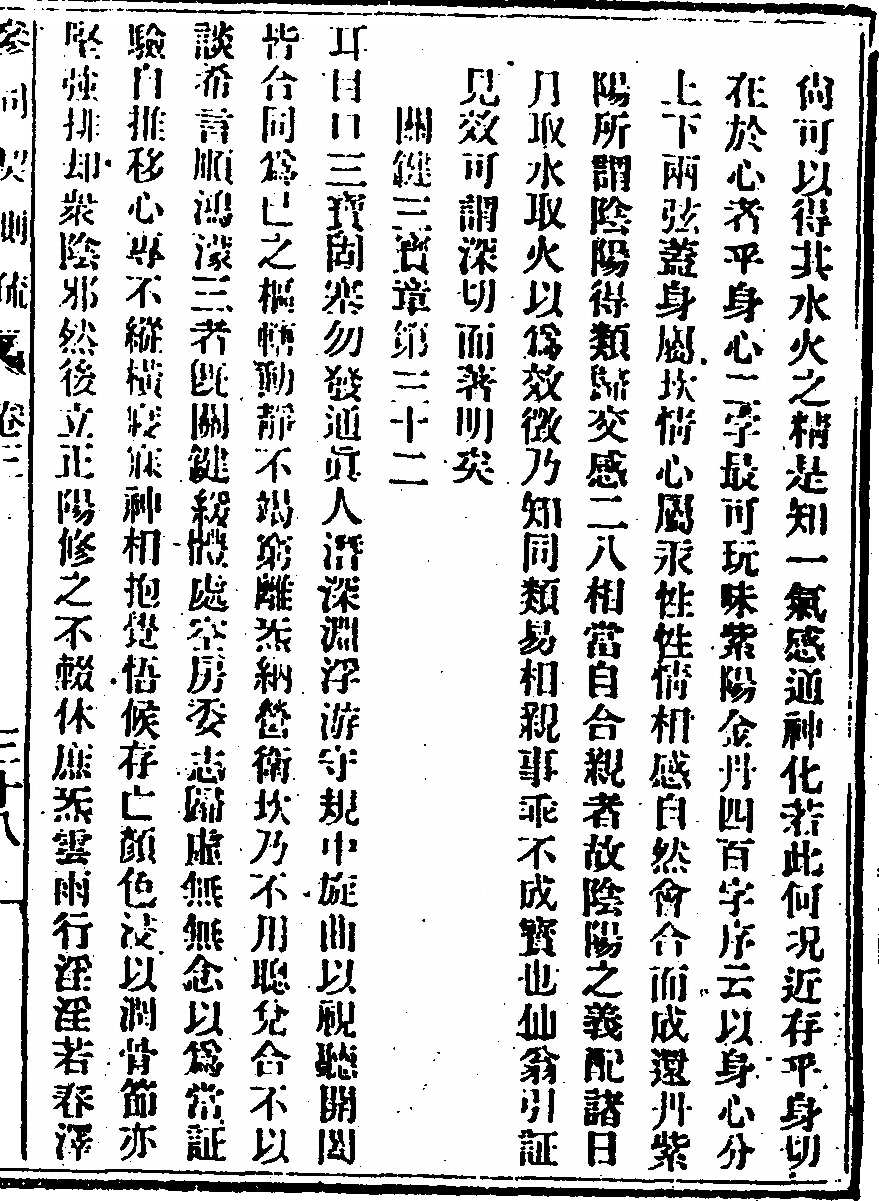 尙可以得其水火之精是知一氣感通神化若此何况近存乎身切
在於心者乎身心二字最可玩味紫陽金丹四百字序云以身心分
上下兩弦蓋身屬坎情心屬汞性性情相感自然會合而成還丹紫
陽所謂陰陽得類歸交感二八相當自合親者故陰陽之義配諸日
月取水取火以爲效徵乃知同類易相親事乖不成寶也仙翁引証
見效可謂深切而著明矣
關鍵三寶章第三十二
耳目口三寶固塞勿發通眞人潛深淵浮游守規中旋曲以視聽開闔
皆合同爲己之樞轄動靜不竭窮離炁納營衛坎乃不用聰兌合不以
談希言順鴻濛三者旣關鍵緩體處空房委志歸虛無無念以爲常証
驗自推移心專不縱橫寢寐神相抱覺悟候存亡顏色浸以潤骨節亦
堅強排却衆陰邪然後立正陽修之不輟休庶炁雲雨行淫淫若春澤
參同契測疏 卷三 三十八